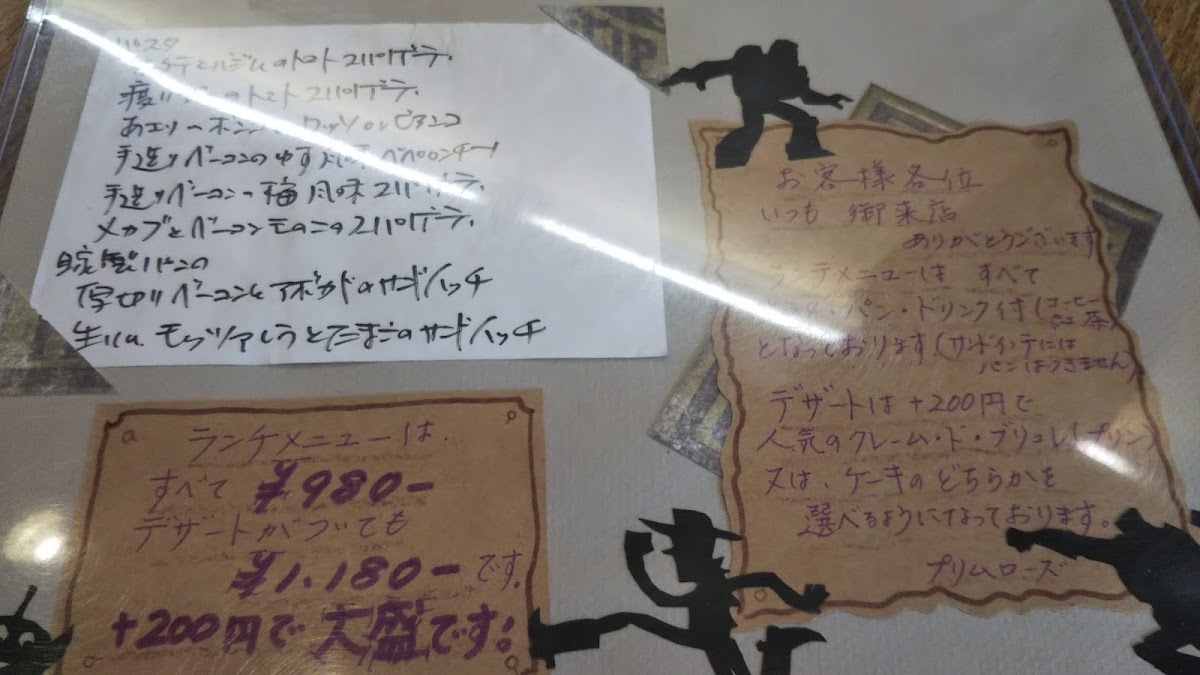 パスタ
のトマトスパゲテ.
のトマトスパゲテ.
手造りベーコンのゆず ペペロンチーノ
手造りベーコンの梅風味スパゲテ.
メカブとベーコンキノコのスパゲテ.
自家製パンの
厚切りベーコンとアボガドのサンドイッチ
生ハムモッツァレラとたまごのサンドイッチ
ランチメニューは
すべて ¥980-
デザートがついても
¥1.180-です.
+200円で大盛です!
お客様各位
いつも 御来店
ありがとうございます
ランチメニューは すべて
パン・ドリンク付(コーヒー 紅茶)
となっております.(サンドイッチには パンはつきません)
デザートは+200円で
人気のクレーム・ド・ブリュレ(プリン)
又は、ケーキのどちらかを
選べるようになっております。
プリムローズ